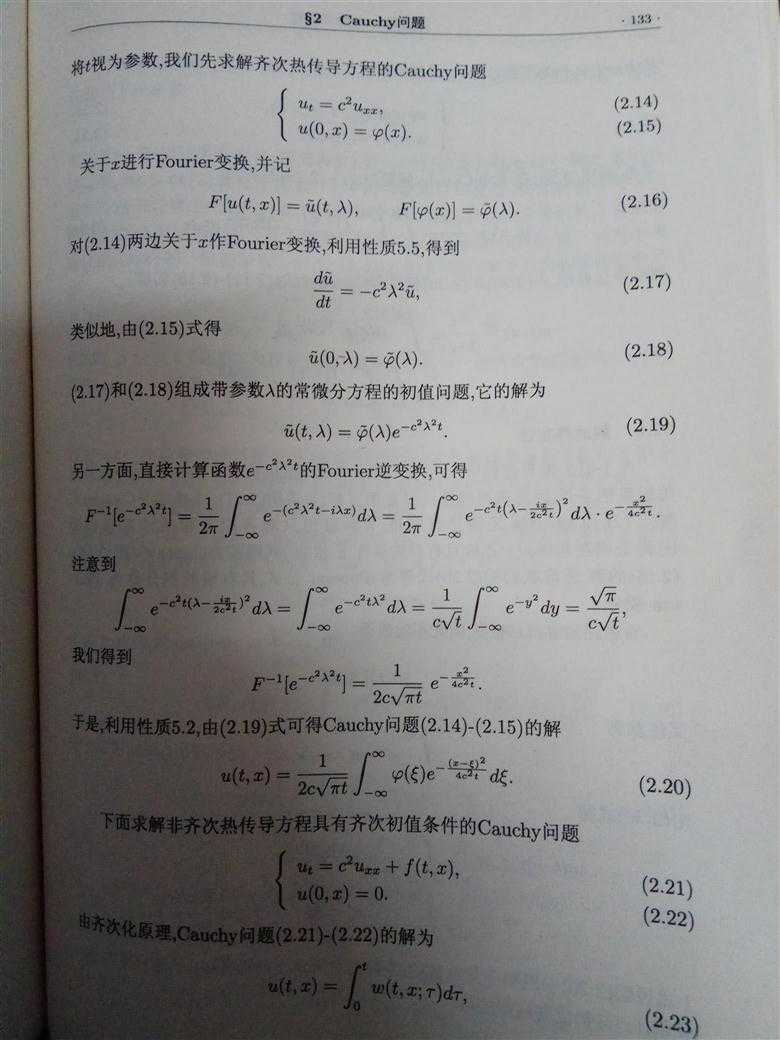 §2 Cauchy问题 · 133 ·
将t视为参数,我们先求解齐次热传导方程的Cauchy问题
{ u_t = c²u_{xx}, (2.14)
u(0, x) = φ(x). (2.15)
关于x进行Fourier变换,并记
F[u(t, x)] = ũ(t, λ), F[φ(x)] = φ̃(λ). (2.16)
对(2.14)两边关于x作Fourier变换,利用性质5.5,得到
dũ/dt = −c²λ²ũ, (2.17)
类似地,由(2.15)式得
ũ(0, λ) = φ̃(λ). (2.18)
(2.17)和(2.18)组成带参数λ的常微分方程的初值问题,它的解为
ũ(t, λ) = φ̃(λ)e^{−c²λ²t}. (2.19)
另一方面,直接计算函数e^{−c²λ²t}的Fourier逆变换,可得
F^{−1}[e^{−c²λ²t}] = \frac{1}{2π} ∫_{−∞}^{∞} e^{−(c²λ²t−iλx)}dλ = \frac{1}{2π} ∫_{−∞}^{∞} e^{−c²t(λ−\frac{ix}{2c²t})²} dλ · e^{−\frac{x²}{4c²t}}.
注意到
∫_{−∞}^{∞} e^{−c²t(λ−\frac{ix}{2c²t})²} dλ = ∫_{−∞}^{∞} e^{−c²tλ²} dλ = \frac{1}{c√t} ∫_{−∞}^{∞} e^{−y²} dy = \frac{√π}{c√t},
我们得到
F^{−1}[e^{−c²λ²t}] = \frac{1}{2c√{πt}} e^{−\frac{x²}{4c²t}}.
于是,利用性质5.2,由(2.19)式可得Cauchy问题(2.14)-(2.15)的解
u(t, x) = \frac{1}{2c√{πt}} ∫_{−∞}^{∞} φ(ξ)e^{−\frac{(x−ξ)²}{4c²t}} dξ. (2.20)
下面求解非齐次热传导方程具有齐次初值条件的Cauchy问题
{ u_t = c²u_{xx} + f(t, x), (2.21)
u(0, x) = 0. (2.22)
由齐次化原理,Cauchy问题(2.21)-(2.22)的解为
u(t, x) = ∫_0^t w(t, x; τ)dτ, (2.23)